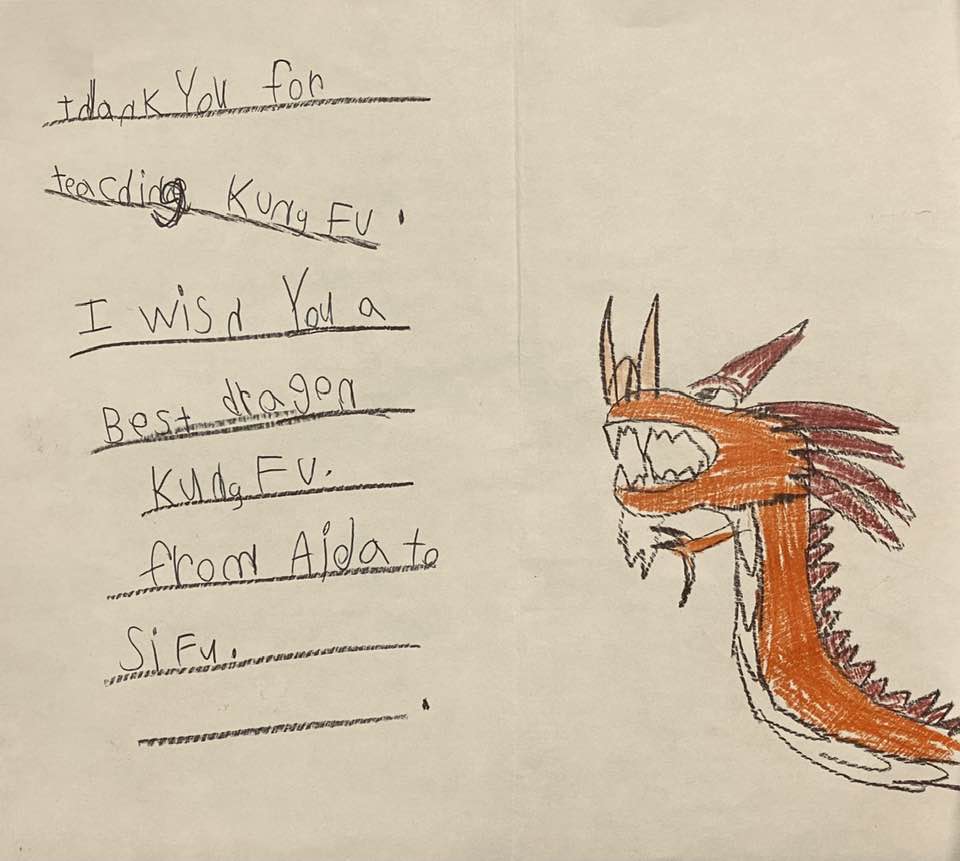 tdank You for
teacding Kung FU.
I wisd You a
Best dragen
Kung FU.
from Aida to
Si Fu.